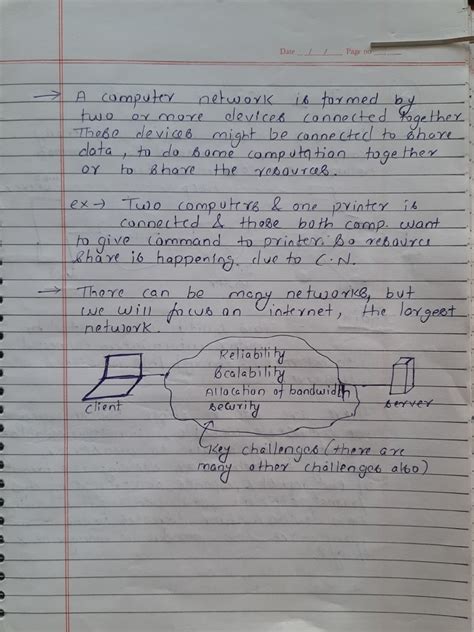 Date __/__/__ Page no
→ A computer network is formed by
two or more devices connected together
These devices might be connected to share
data, to do some computation together
or to share the resources.
ex → Two computers & one printer is
connected & those both comp. want
to give command to printer. So resource
share is happening due to C.N.
→ There can be many networks, but
we will focus on internet, the largest
network.
Reliability
Scalability
Allocation of bandwidth
security
client
server
Key challenges (there are
many other challenges also)